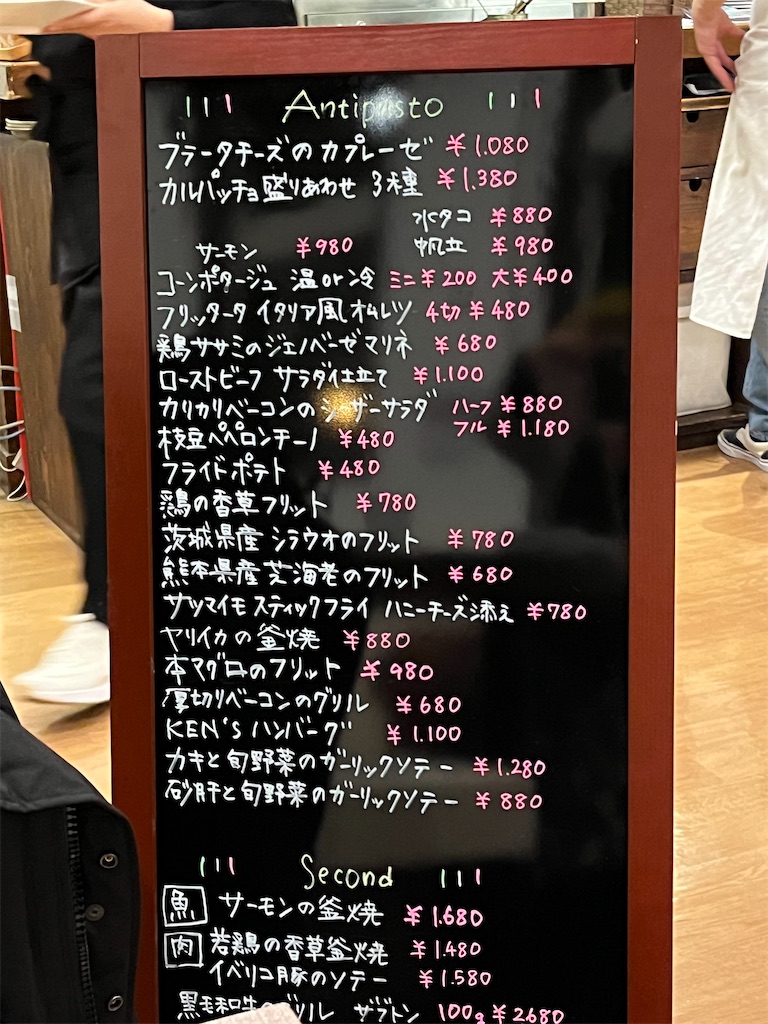 Antipasto
ブラータチーズのカプレーゼ ¥1.080
カルパッチョ盛りあわせ 3種 ¥1.380
水タコ ¥880
サーモン ¥980 帆立 ¥980
コーンポタージュ 温or冷 ミニ¥200 大¥400
フリッタータ イタリア風オムレツ 4切¥480
鶏ササミのジェノベーゼマリネ ¥680
ローストビーフ サラダ仕立て ¥1.100
カリカリベーコンのシーザーサラダ ハーフ ¥880
フル ¥1.180
枝豆ペペロンチーノ ¥480
フライドポテト ¥480
鶏の香草フリット ¥780
茨城県産 シラウオのフリット ¥780
熊本県産 芝海老のフリット ¥680
サツマイモ スティックフライ ハニーチーズ添え ¥780
ヤリイカの釜焼 ¥880
本マグロのフリット ¥980
厚切りベーコンのグリル ¥680
KEN'S ハンバーグ ¥1.100
カキと旬野菜のガーリックソテー ¥1.280
砂肝と旬野菜のガーリックソテー ¥880
Second
魚 サーモンの釜焼 ¥1.680
肉 若鶏の香草釜焼 ¥1.480
イベリコ豚のソテー ¥1.580
黒毛和牛のグリル ザブトン 100g ¥2.680